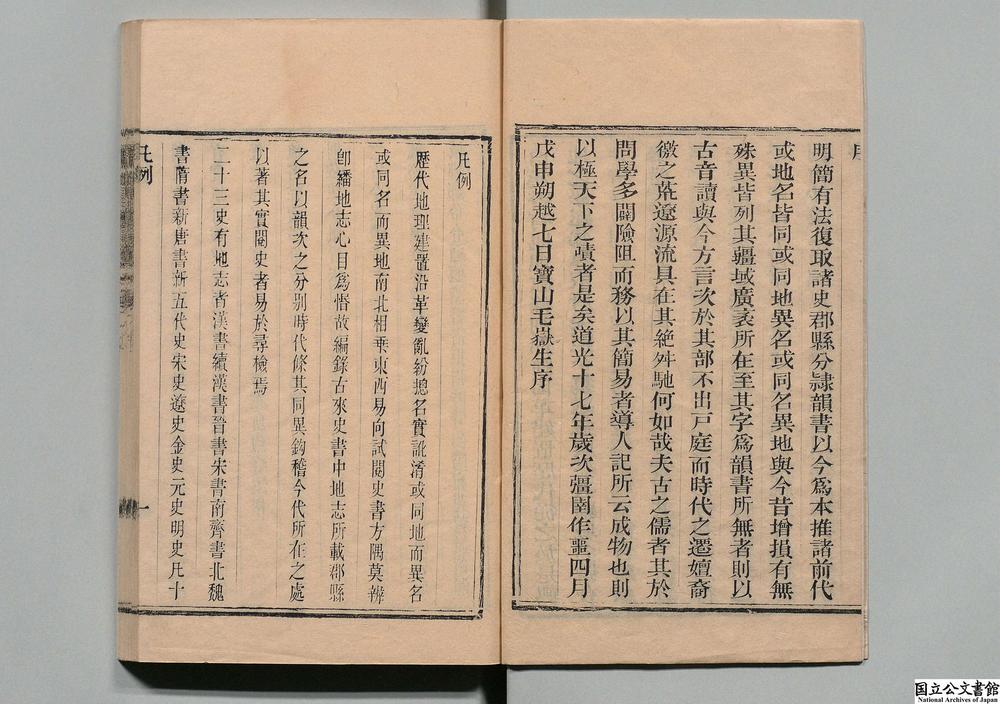 序
明簡有法復取諸史郡縣分隸韻書以今爲本推諸前代
或地名皆同或同地異名或同名異地與今昔增損有無
殊異皆列其疆域廣袤所在至其字爲韻書所無者則以
古音讀與今方言次於其部不出戶庭而時代之遷嬗裔
徼之荒遼源流具在其絶舛馳何如哉夫古之儒者其於
問學多闢險阻而務以其簡易者導人記所云成物也則
以極天下之賾者是矣道光十七年歲次彊圉作噩四月
戊申朔越七日寶山毛嶽生序
凡例
歷代地理建置沿革變亂紛揔名實訛淆或同地而異名
或同名而異地南北相乗東西易向試閱史書方隅莫辨
卽繙地志心目爲悟故編錄古來史書中地志所載郡縣
之名以韻次之分別時代條其同異鉤稽今代所在之處
以著其實閱史者易於尋檢焉
二十三史有地志者漢書續漢書晉書宋書南齊書北魏
書隋書新唐書新五代史宋史遼史金史元史明史凡十
凡例
一
国立公文書館
National Archives of Japan